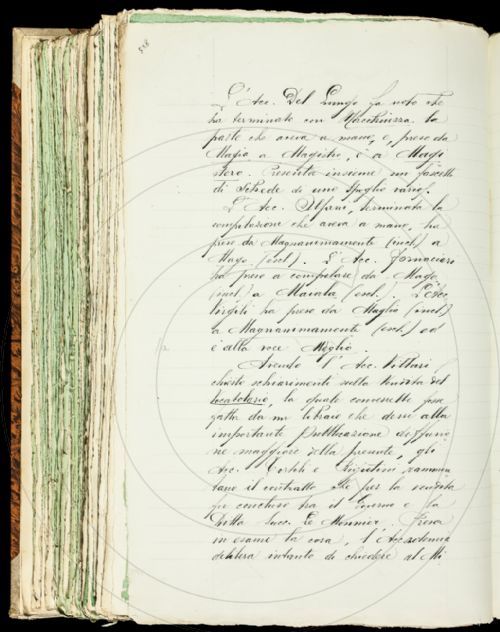 L'Acc. Del Lungo fa noto che
ha terminato con la
parte che aveva a mano, e preso da
Magia a Magistro, è a Magi
stero. Presenta insieme un fascetto
di Schede di uno spoglio vario.
L'Acc. Alfani, terminata la
compilazione che aveva a mano, ha
preso da Magnanimamente (incl.) a
Mago (escl.). L'Acc. Fornaciari
ha preso a compilare da Mago
(incl.) a (escl.). L'Acc.
ha preso da Maglio (incl.)
a Magnanimamente (escl.) ed
è alla voce Meglio.
Avendo l'Acc. Villari
chiesto schiarimento sulla vendita del
Vocabolario, la quale vorrebbe
da un Libraio che desse alla
importante Pubblicazione diffusio
ne maggiore della presente, gli
Acc. Tortoli e rammen
tano il contratto che per la vendita
fu concluso tra il Governo e la
Ditta Succ. Le Monnier. Presa
in esame la cosa, l'Accademia
delibera intanto di chiedere al Mi